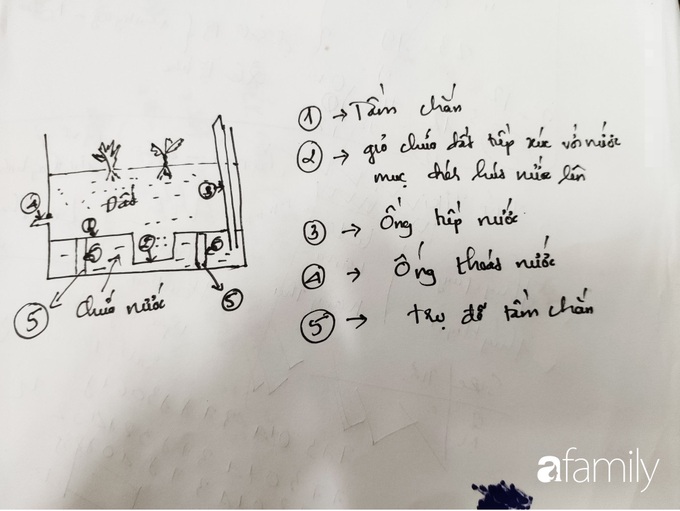 ① → Tấm chắn
② → giỏ chứa đất tiếp xúc với nước
mục đích hút nước lên
③ → Ống tiếp nước
④ → Ống thoát nước
⑤ → trụ đỡ tấm chắn
Đất
④
③
①
⑤
②
⑤
⑤
Chứa nước
⑤
afamily